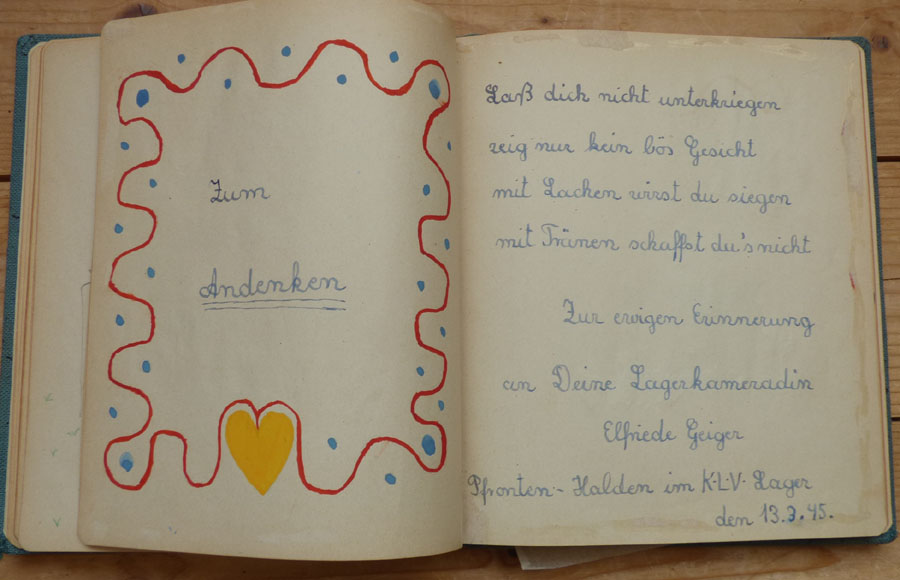 Zum
Andenken
Laß dich nicht unterkriegen
zeig nur kein bös Gesicht
mit Lachen wirst du siegen
mit Tränen schaffst du's nicht
Zur ewigen Erinnerung
an Deine Lagerkameradin
Elfriede Geiger
Pfronten - Halden im K.L.V. Lager
den 13.3.45.